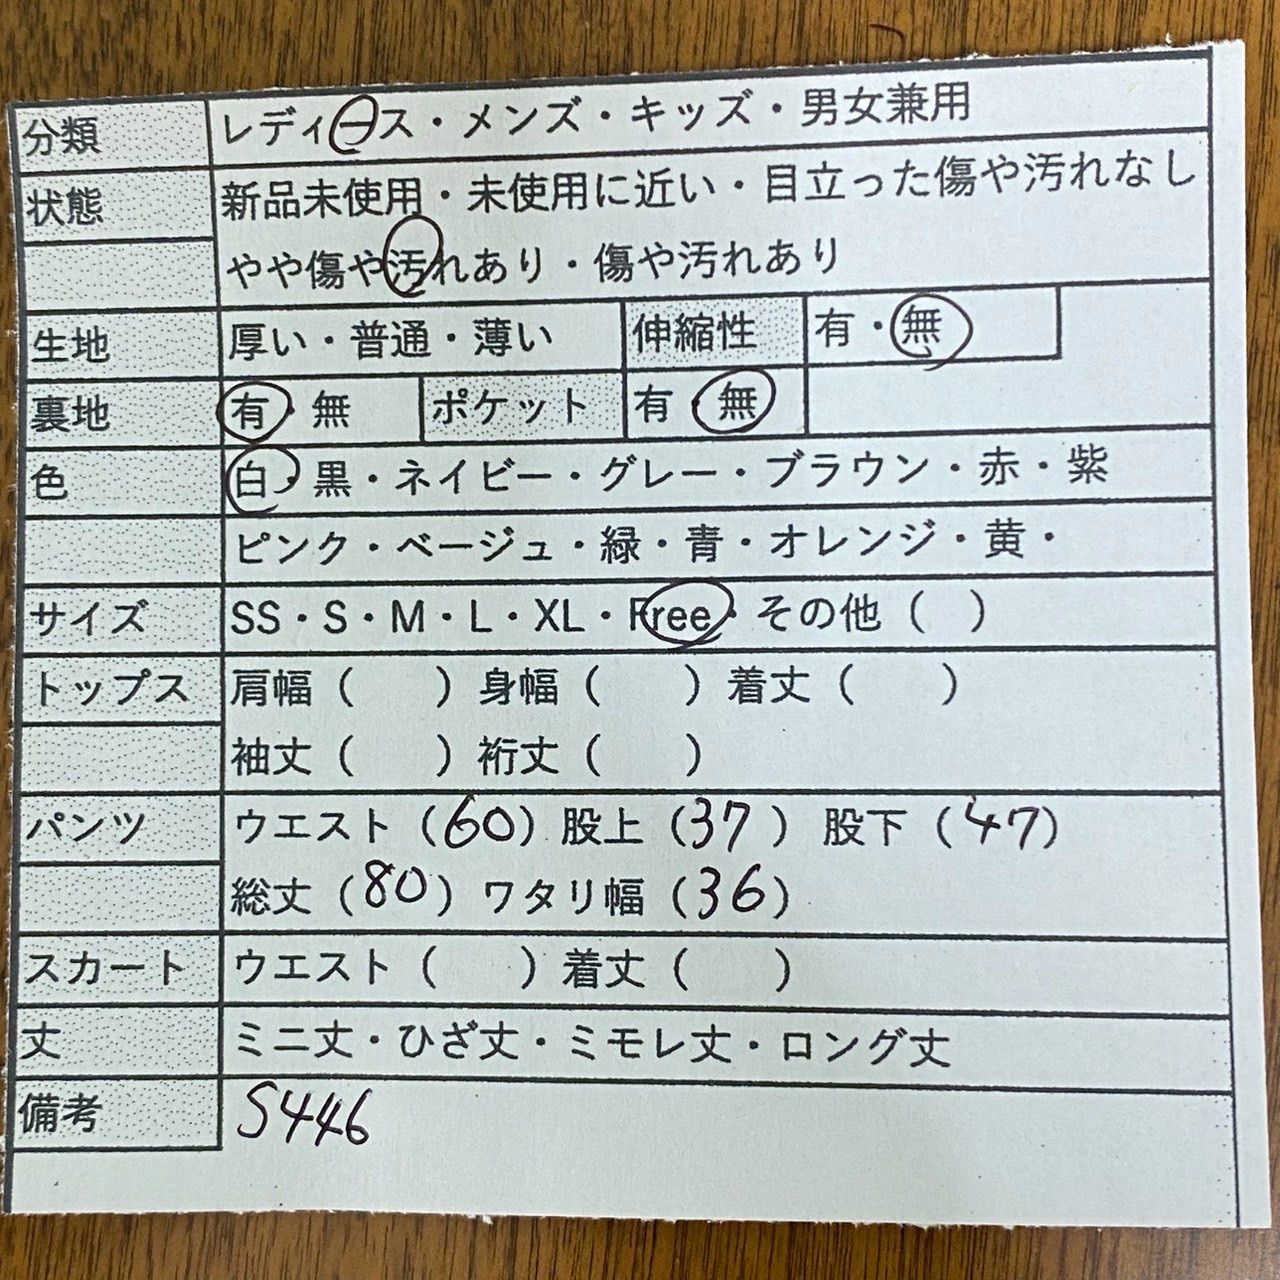 分類 レディース・メンズ・キッズ・男女兼用
状態 新品未使用・未使用に近い・目立った傷や汚れなし
やや傷や汚れあり・傷や汚れあり
生地 厚い・普通・薄い 伸縮性 有・無
裏地 有・無 ポケット 有・無
色 白・黒・ネイビー・グレー・ブラウン・赤・紫
ピンク・ベージュ・緑・青・オレンジ・黄・
サイズ SS・S・M・L・XL・Free・その他（ ）
トップス 肩幅（ ）身幅（ ）着丈（ ）
袖丈（ ）裄丈（ ）
パンツ ウエスト（60）股上（37）股下（47）
総丈（80）ワタリ幅（36）
スカート ウエスト（ ）着丈（ ）
丈 ミニ丈・ひざ丈・ミモレ丈・ロング丈
備考 S446